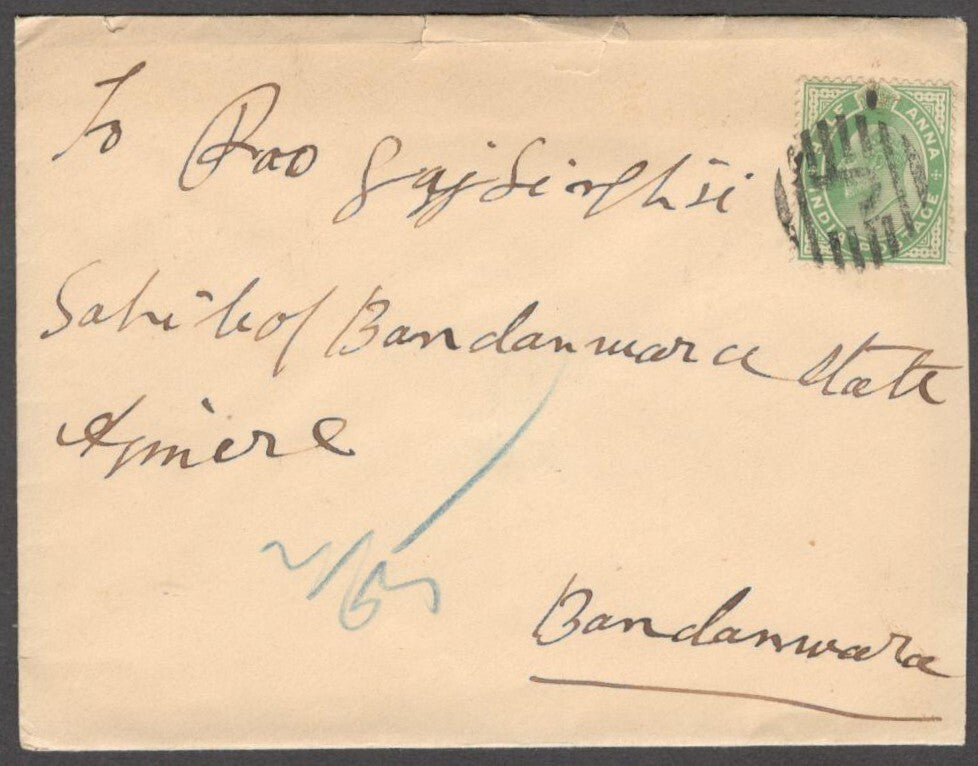 To
Rao Gajsinghsi
Sahib of Bandanwara State
Ajmere
Bandanwara
ANNA
INDIA POSTAGE